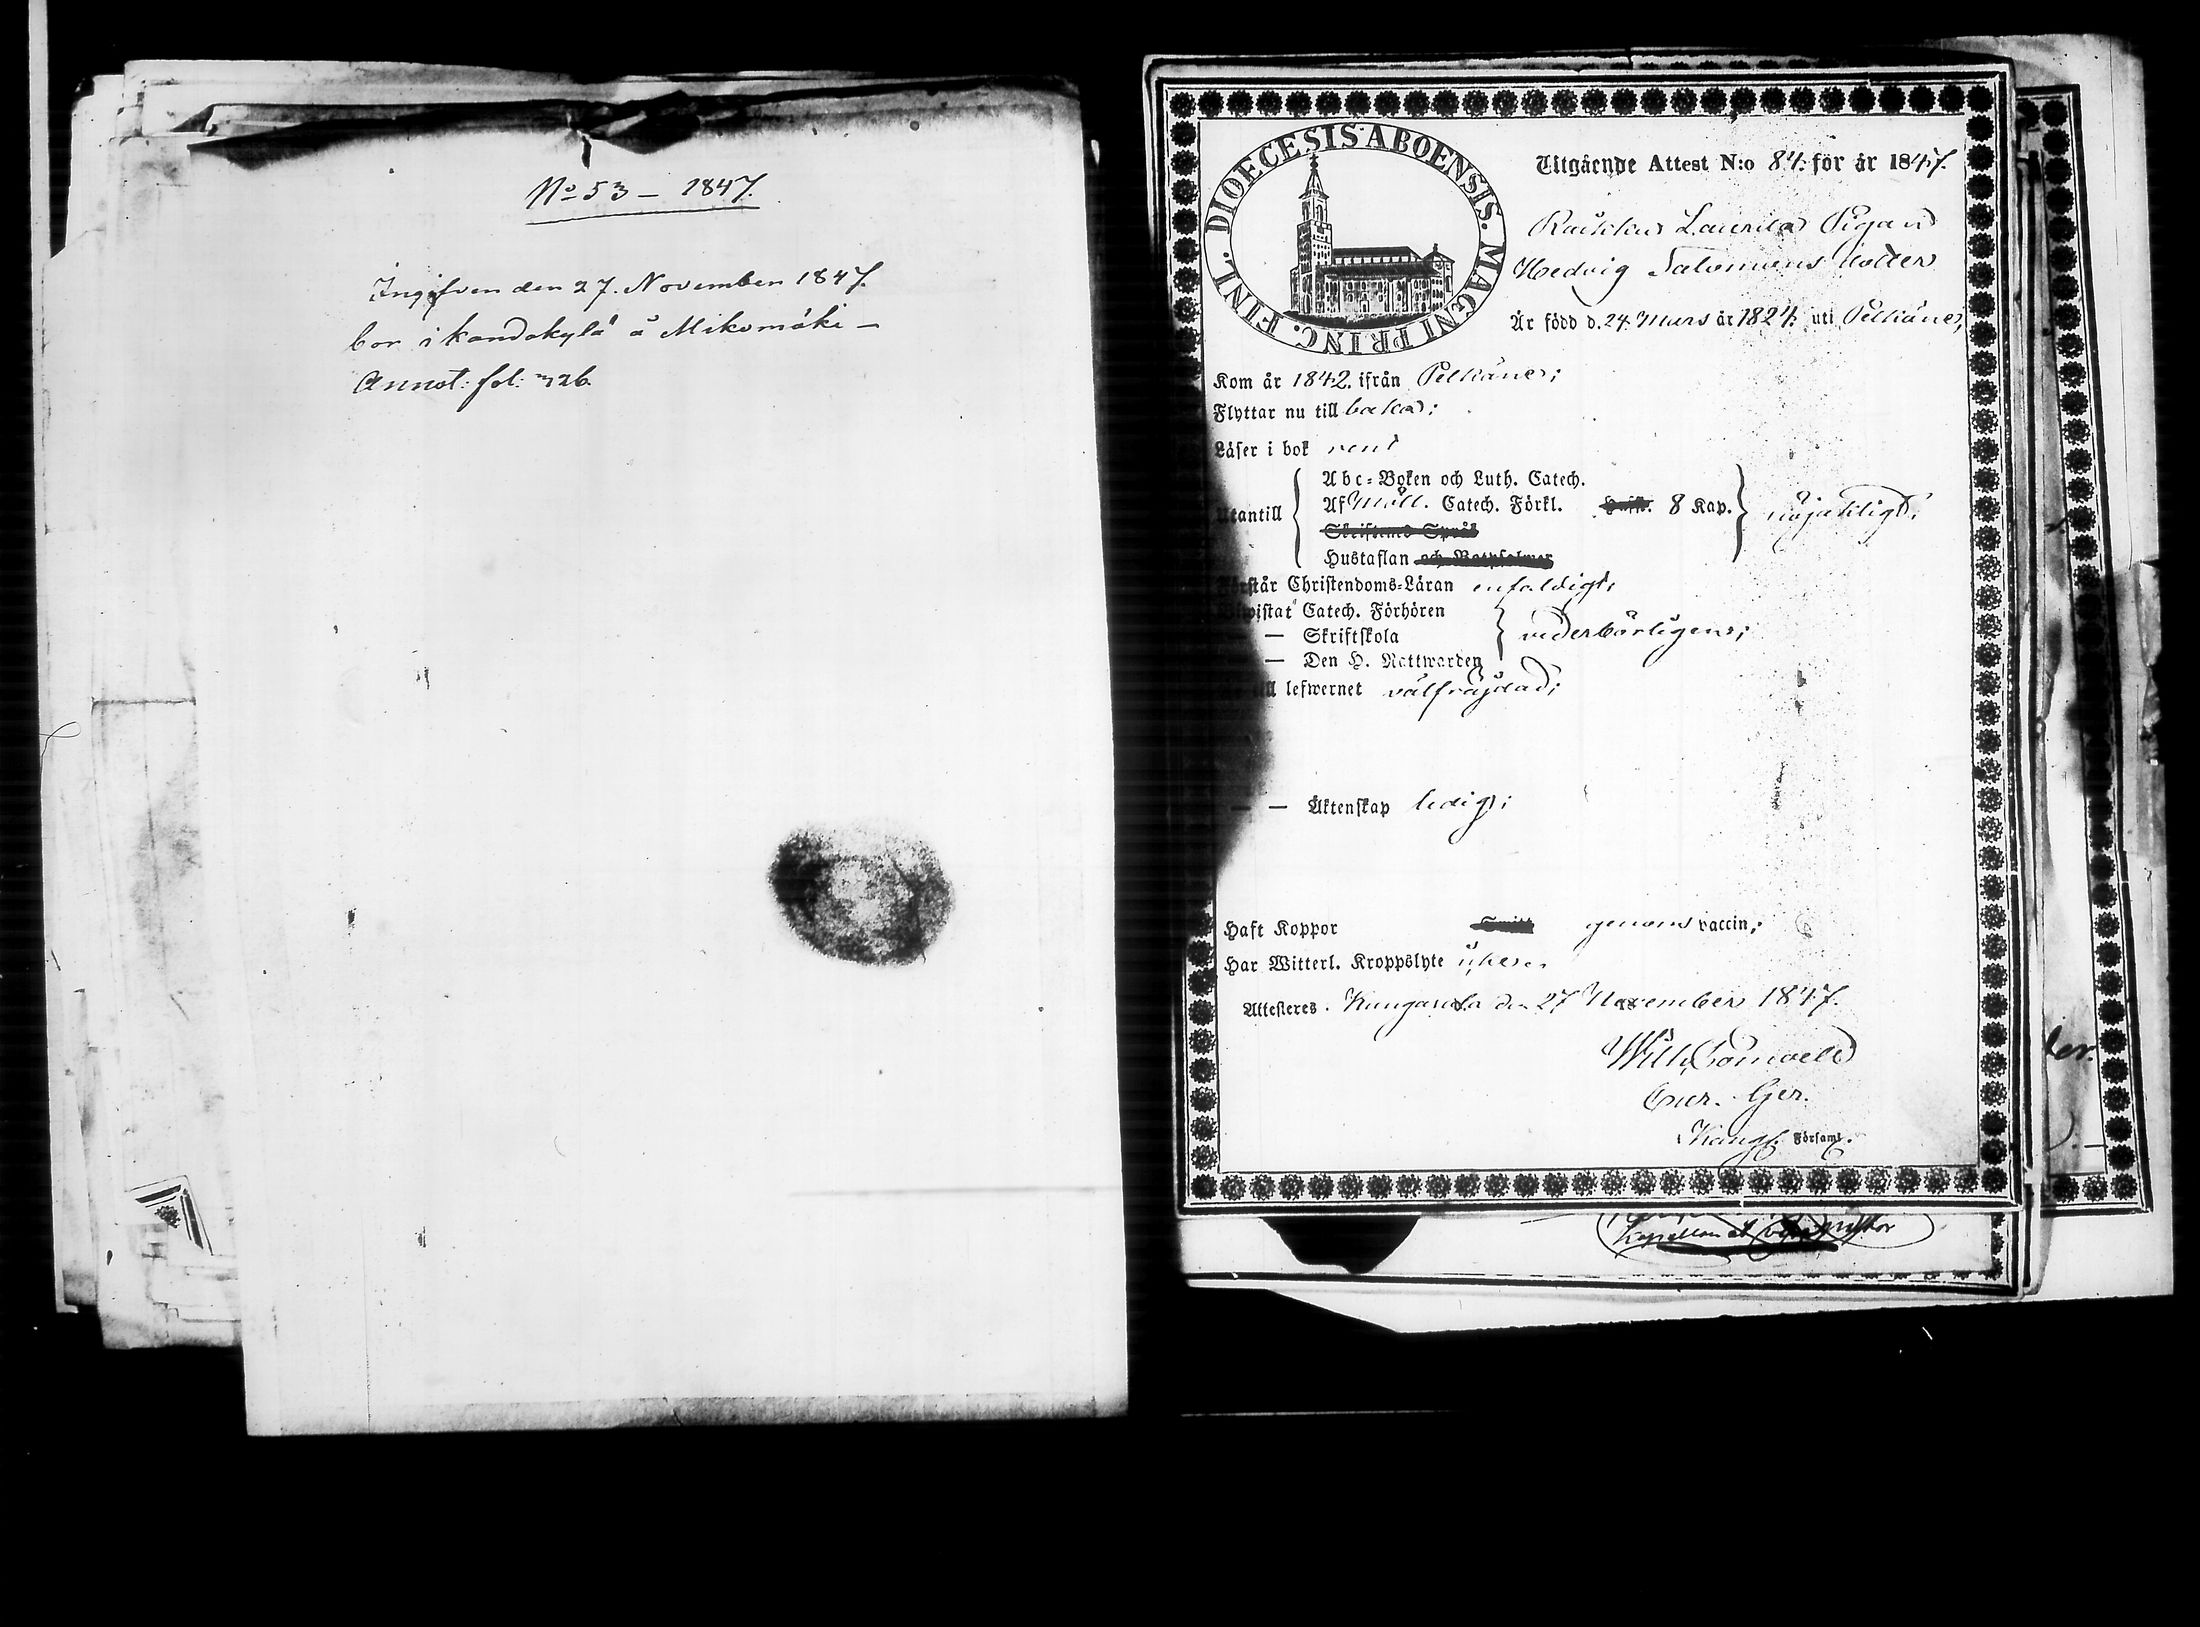 No 53 – 1847.
Ingifven den 27. November 1847.
bor i kandokylä å Mikomäki –
Annot: fol: 326.
DIOECESIS ABOENSIS. MAGNI PRINC. FINL.
Utgående Attest N:o 84. för år 1847.
Raikku Laurila Pigan
Hedvig Salomons dotter
Är född d. 24. Mars år 1824. uti Pelkäne,
Kom år 1842. ifrån Pelkäne;
Flyttar nu till baka;
Läser i bok rent
Utantill
Abc-Boken och Luth. Catech.
Af Möll. Catech. Förkl. 8 Kap. nöjaktligt;
Skriftens Språk
Hustaflan och Botpsalmer
Förstår Christendoms-Läran enfaldigt,
Bewistat Catech. Förhören
— Skriftskola vederbörligen;
— Den H. Nattwarden
till lefwernet välfräjdad;
— — Äktenskap ledig;
Haft Koppor Smitt genom vaccin;
Har Witterl. Kroppslyte icke.
Attesteres. Kangasala den 27 November 1847.
Wilh.
Cur. Ger.
Kang. Församl.
Kapellan
ler.